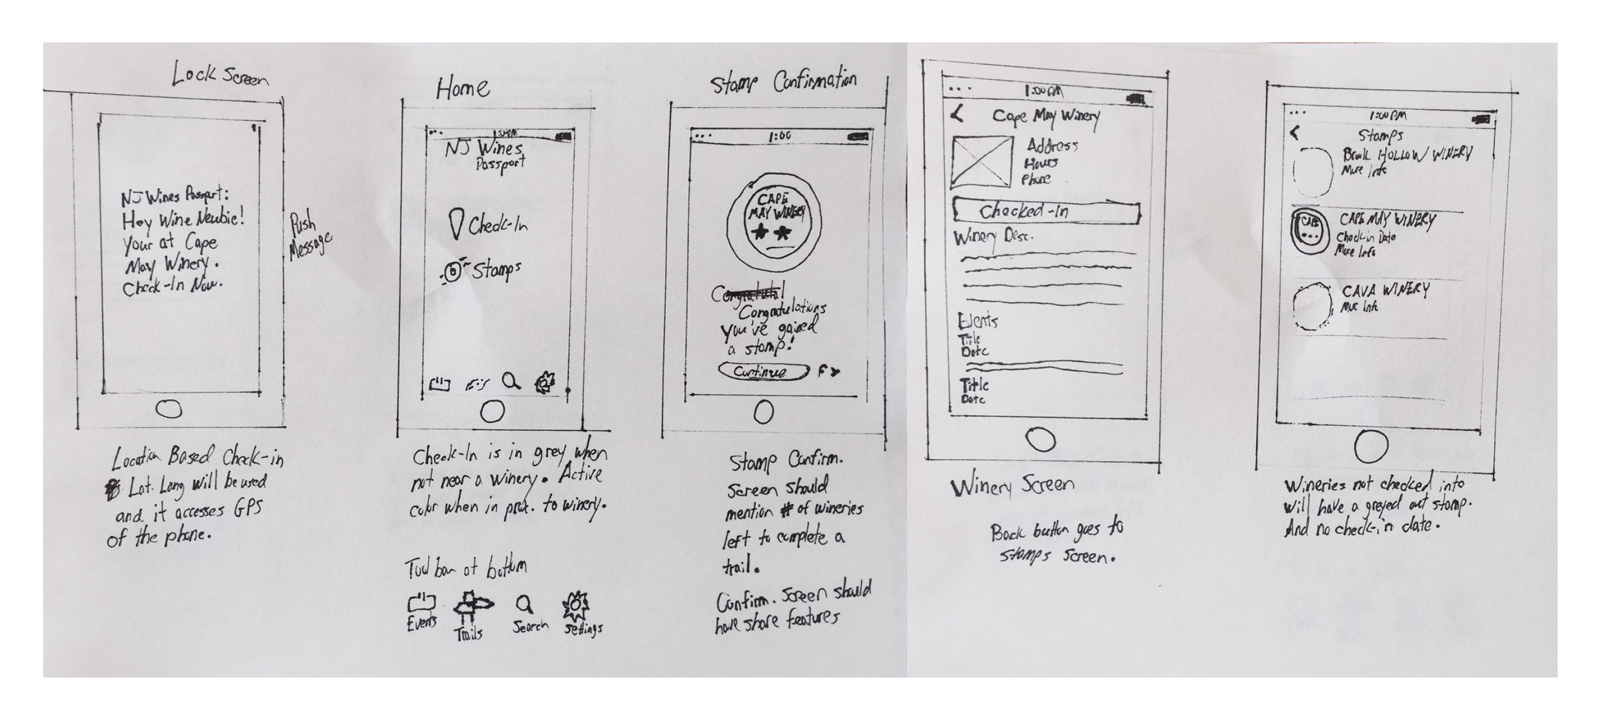 Lock Screen
NJ Wines Passport:
Hey Wine Newbie!
Your at Cape
May Winery.
Check-In Now.
Push
Message
Location Based Check-in
Lat. Long will be used
and it accesses GPS
of the phone.
Home
1:00PM
NJ Wines
Passport
Check-In
Stamps
Check-In is in grey when
not near a winery. Active
color when in prox. to winery.
Tool bar at bottom
Events
Trails
Search
Settings
Stamp Confirmation
1:00
CAPE
MAY WINERY
Congratulations
You've gained
a stamp!
Continue
F
Stamp Confirm.
Screen should
mention # of wineries
left to complete a
trail.
Confirm. Screen should
have share features
1:00PM
< Cape May Winery
Address
Hours
Phone
Checked-In
Winery Desc.
Events
Title
Date
Title
Date
Winery Screen
Back button goes to
Stamps Screen.
1:00PM
< Stamps
Brook HOLLOW WINERY
More Info
CAPE
CAPE MAY WINERY
Check-in Date
More Info
CAVA WINERY
More Info
Wineries not checked into
will have a greyed out stamp.
And no check-in date.